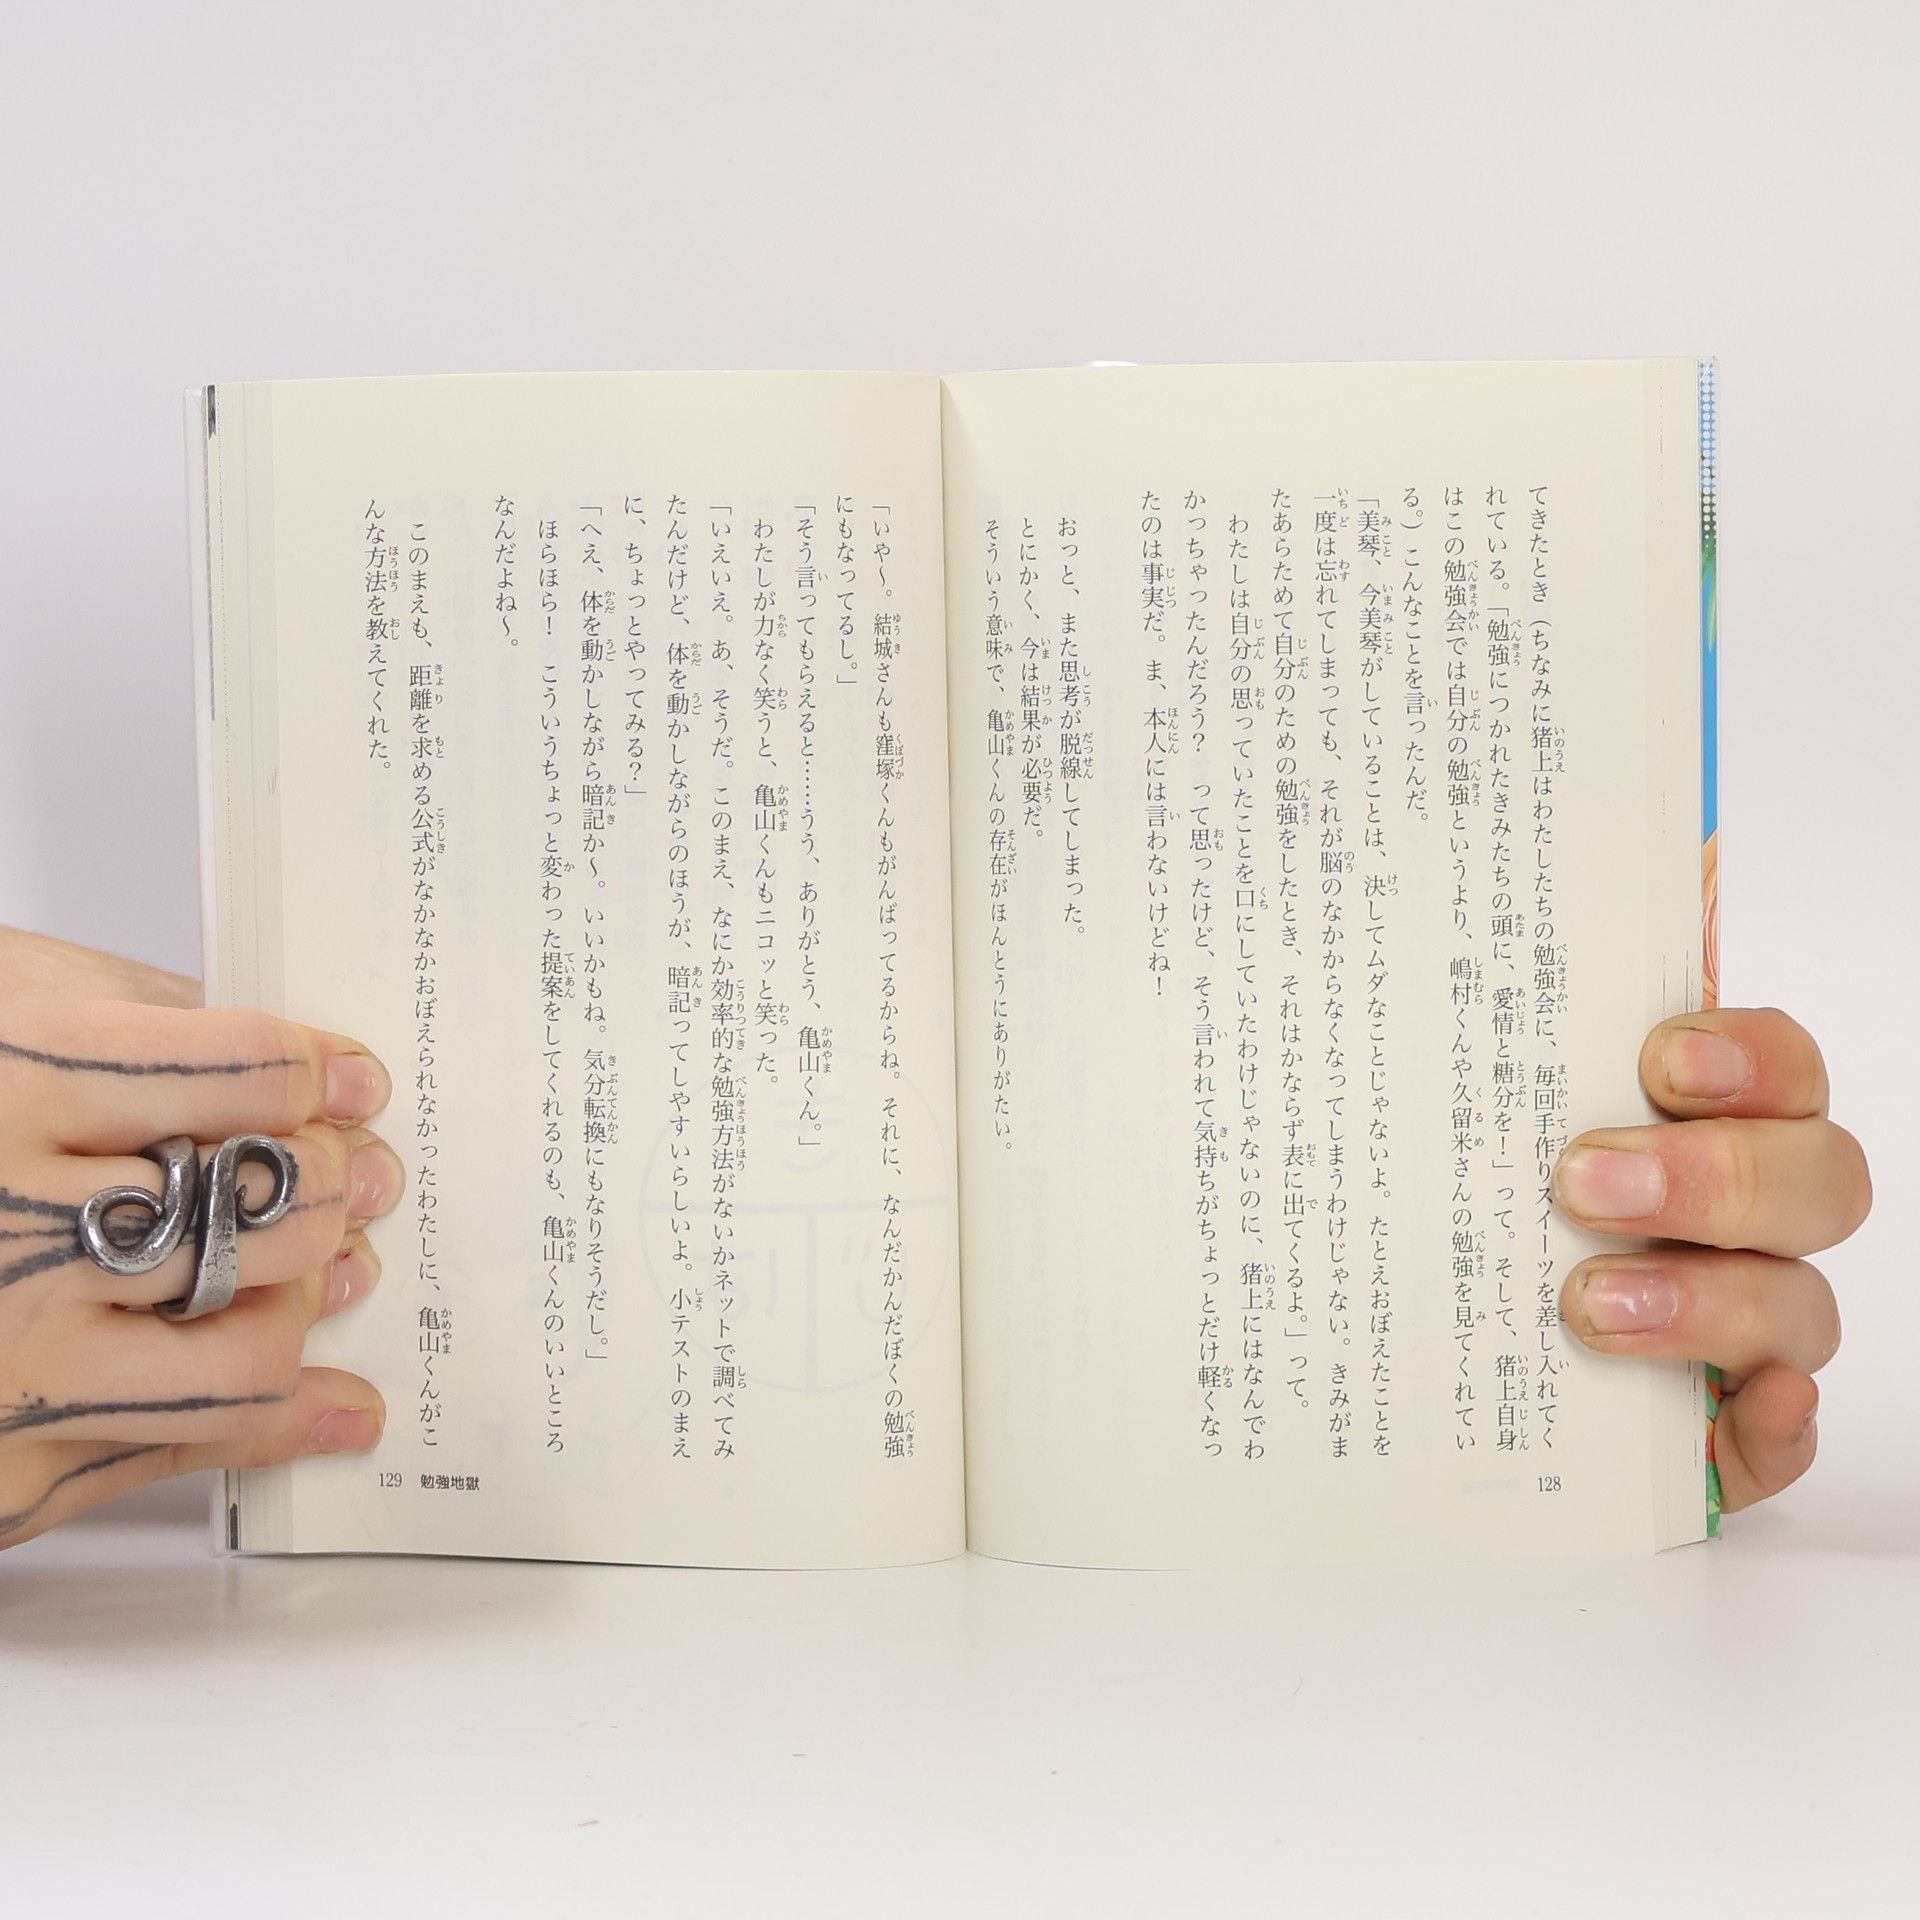 てきたとき（ちなみに猪上はわたしたちの勉強会に、毎回手作りスイーツを差し入れてく
れている。「勉強につかれたきみたちの頭に、愛情と糖分を！」って。そして、猪上自身
はこの勉強会では自分の勉強というより、嶋村くんや久留米さんの勉強を見てくれてい
る。）こんなことを言ったんだ。
「美琴、今美琴がしていることは、決してムダなことじゃないよ。たとえおぼえたことを
一度は忘れてしまっても、それが脳のなかからなくなってしまうわけじゃない。きみがま
たあらためて自分のための勉強をしたとき、それはかならず表に出てくるよ。」って。
わたしは自分の思っていたことを口にしていたわけじゃないのに、猪上にはなんでわ
かっちゃったんだろう？　って思ったけど、そう言われて気持ちがちょっとだけ軽くなっ
たのは事実だ。ま、本人には言わないけどね！
おっと、また思考が脱線してしまった。
とにかく、今は結果が必要だ。
そういう意味で、亀山くんの存在がほんとうにありがたい。
128
「いや〜。結城さんも窪塚くんもがんばってるからね。それに、なんだかんだぼくの勉強
にもなってるし。」
「そう言ってもらえると……うう、ありがとう、亀山くん。」
わたしが力なく笑うと、亀山くんもニコッと笑った。
「いえいえ。あ、そうだ。このまえ、なにか効率的な勉強方法がないかネットで調べてみ
たんだけど、体を動かしながらのほうが、暗記ってしやすいらしいよ。小テストのまえ
に、ちょっとやってみる？」
「へえ、体を動かしながら暗記か〜。いいかもね。気分転換にもなりそうだし。」
ほらほら！　こういうちょっと変わった提案をしてくれるのも、亀山くんのいいところ
なんだよね〜。
このまえも、距離を求める公式がなかなかおぼえられなかったわたしに、亀山くんがこ
んな方法を教えてくれた。
129　勉強地獄